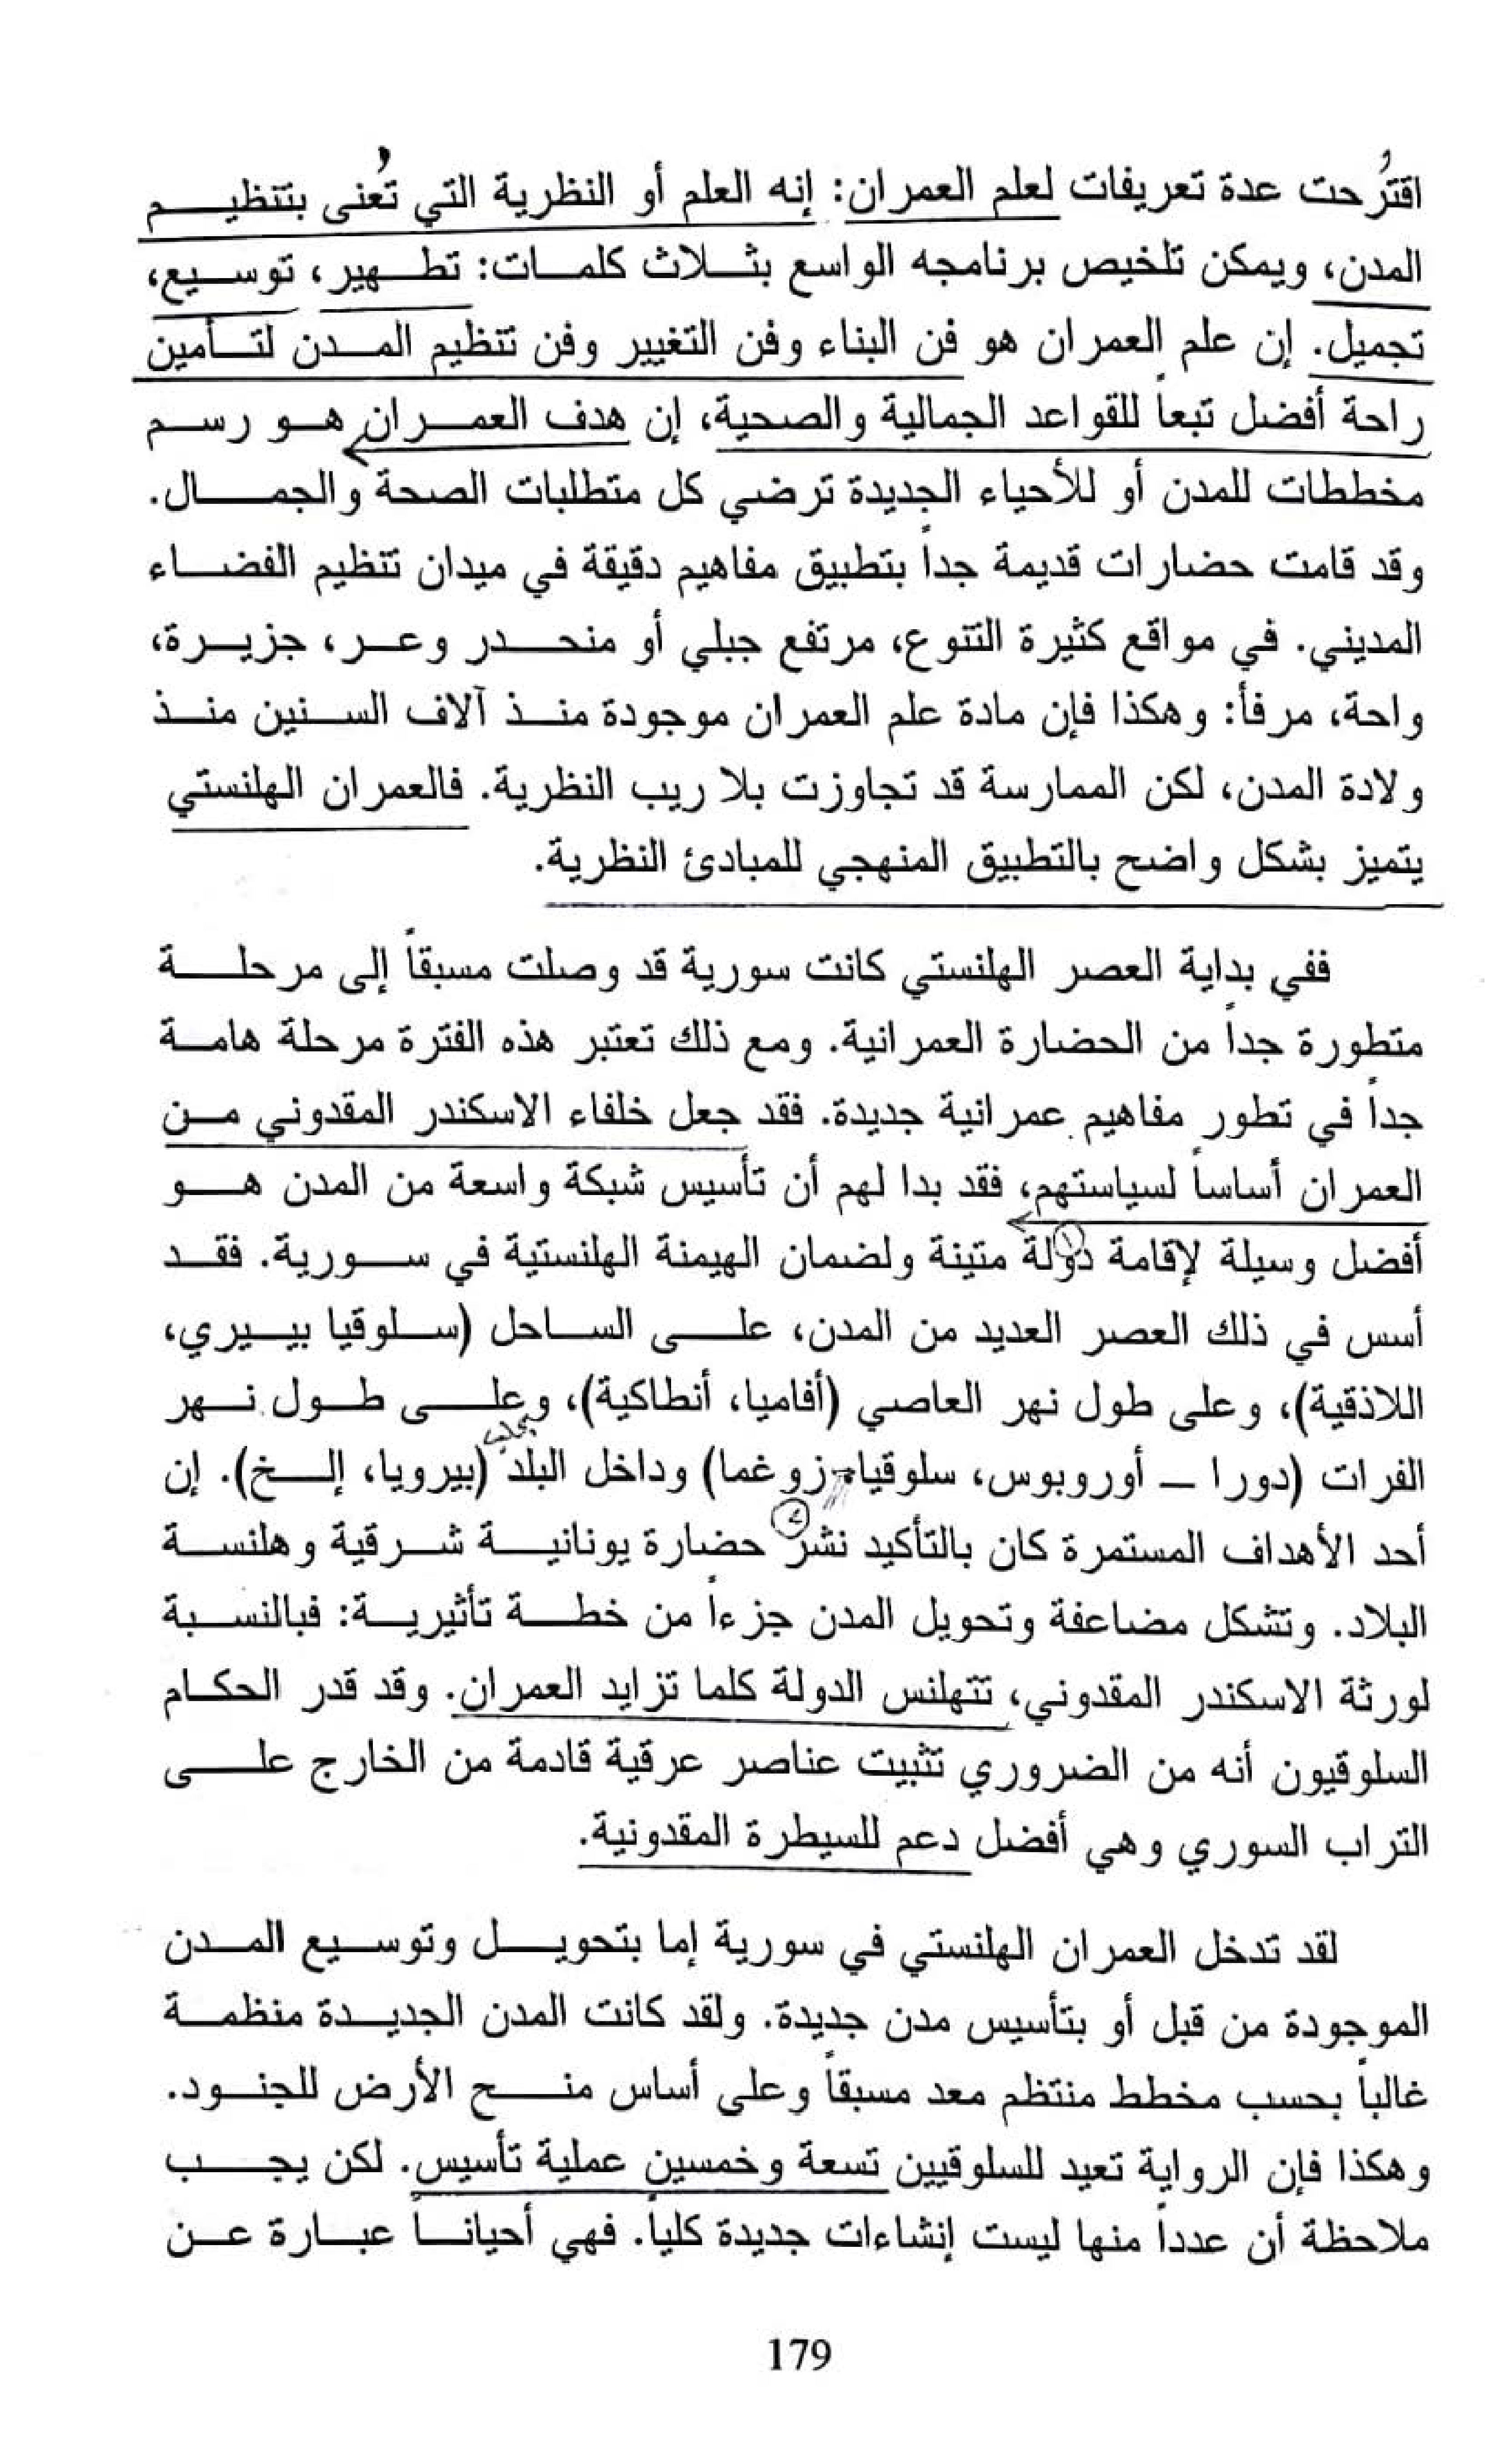 اقترُحت عدة تعريفات لعلم العمران: إنه العلم أو النظرية التي تُعنى بتنظيم
المدن، ويمكن تلخيص برنامجه الواسع بثلاث كلمات: تطهير، توسيع،
تجميل. إن علم العمران هو فن البناء وفن التغيير وفن تنظيم المدن لتأمين
راحة أفضل تبعاً للقواعد الجمالية والصحية، إن هدف العمران هو رسم
مخططات للمدن أو للأحياء الجديدة ترضي كل متطلبات الصحة والجمال.
وقد قامت حضارات قديمة جداً بتطبيق مفاهيم دقيقة في ميدان تنظيم الفضاء
المديني. في مواقع كثيرة التنوع، مرتفع جبلي أو منحدر وعر، جزيرة،
واحة، مرفأ: وهكذا فإن مادة علم العمران موجودة منذ آلاف السنين منذ
ولادة المدن، لكن الممارسة قد تجاوزت بلا ريب النظرية. فالعمران الهلنستي
يتميز بشكل واضح بالتطبيق المنهجي للمبادئ النظرية.
ففي بداية العصر الهلنستي كانت سورية قد وصلت مسبقاً إلى مرحلة
متطورة جداً من الحضارة العمرانية. ومع ذلك تعتبر هذه الفترة مرحلة هامة
جداً في تطور مفاهيم عمرانية جديدة. فقد جعل خلفاء الاسكندر المقدوني من
العمران أساساً لسياستهم، فقد بدا لهم أن تأسيس شبكة واسعة من المدن هو
أفضل وسيلة لإقامة دولة متينة ولضمان الهيمنة الهلنستية في سورية. فقد
أسس في ذلك العصر العديد من المدن، على الساحل (سلوقيا بييري،
اللاذقية)، وعلى طول نهر العاصي (أفاميا، أنطاكية)، وعلى طول نهر
بحلب
الفرات (دورا – أوروبوس، سلوقيا - زوغما) وداخل البلد (بيرويا، إلخ). إن
أحد الأهداف المستمرة كان بالتأكيد نشر حضارة يونانية شرقية وهلنسة
البلاد. وتشكل مضاعفة وتحويل المدن جزءاً من خطة تأثيرية: فبالنسبة
لورثة الاسكندر المقدوني، تتهلنس الدولة كلما تزايد العمران. وقد قدر الحكام
السلوقيون أنه من الضروري تثبيت عناصر عرقية قادمة من الخارج على
التراب السوري وهي أفضل دعم للسيطرة المقدونية.
لقد تدخل العمران الهلنستي في سورية إما بتحويل وتوسيع المدن
الموجودة من قبل أو بتأسيس مدن جديدة. ولقد كانت المدن الجديدة منظمة
غالباً بحسب مخطط منتظم معد مسبقاً وعلى أساس منح الأرض للجنود.
وهكذا فإن الرواية تعيد للسلوقيين تسعة وخمسين عملية تأسيس. لكن يجب
ملاحظة أن عدداً منها ليست إنشاءات جديدة كلياً. فهي أحياناً عبارة عن
179